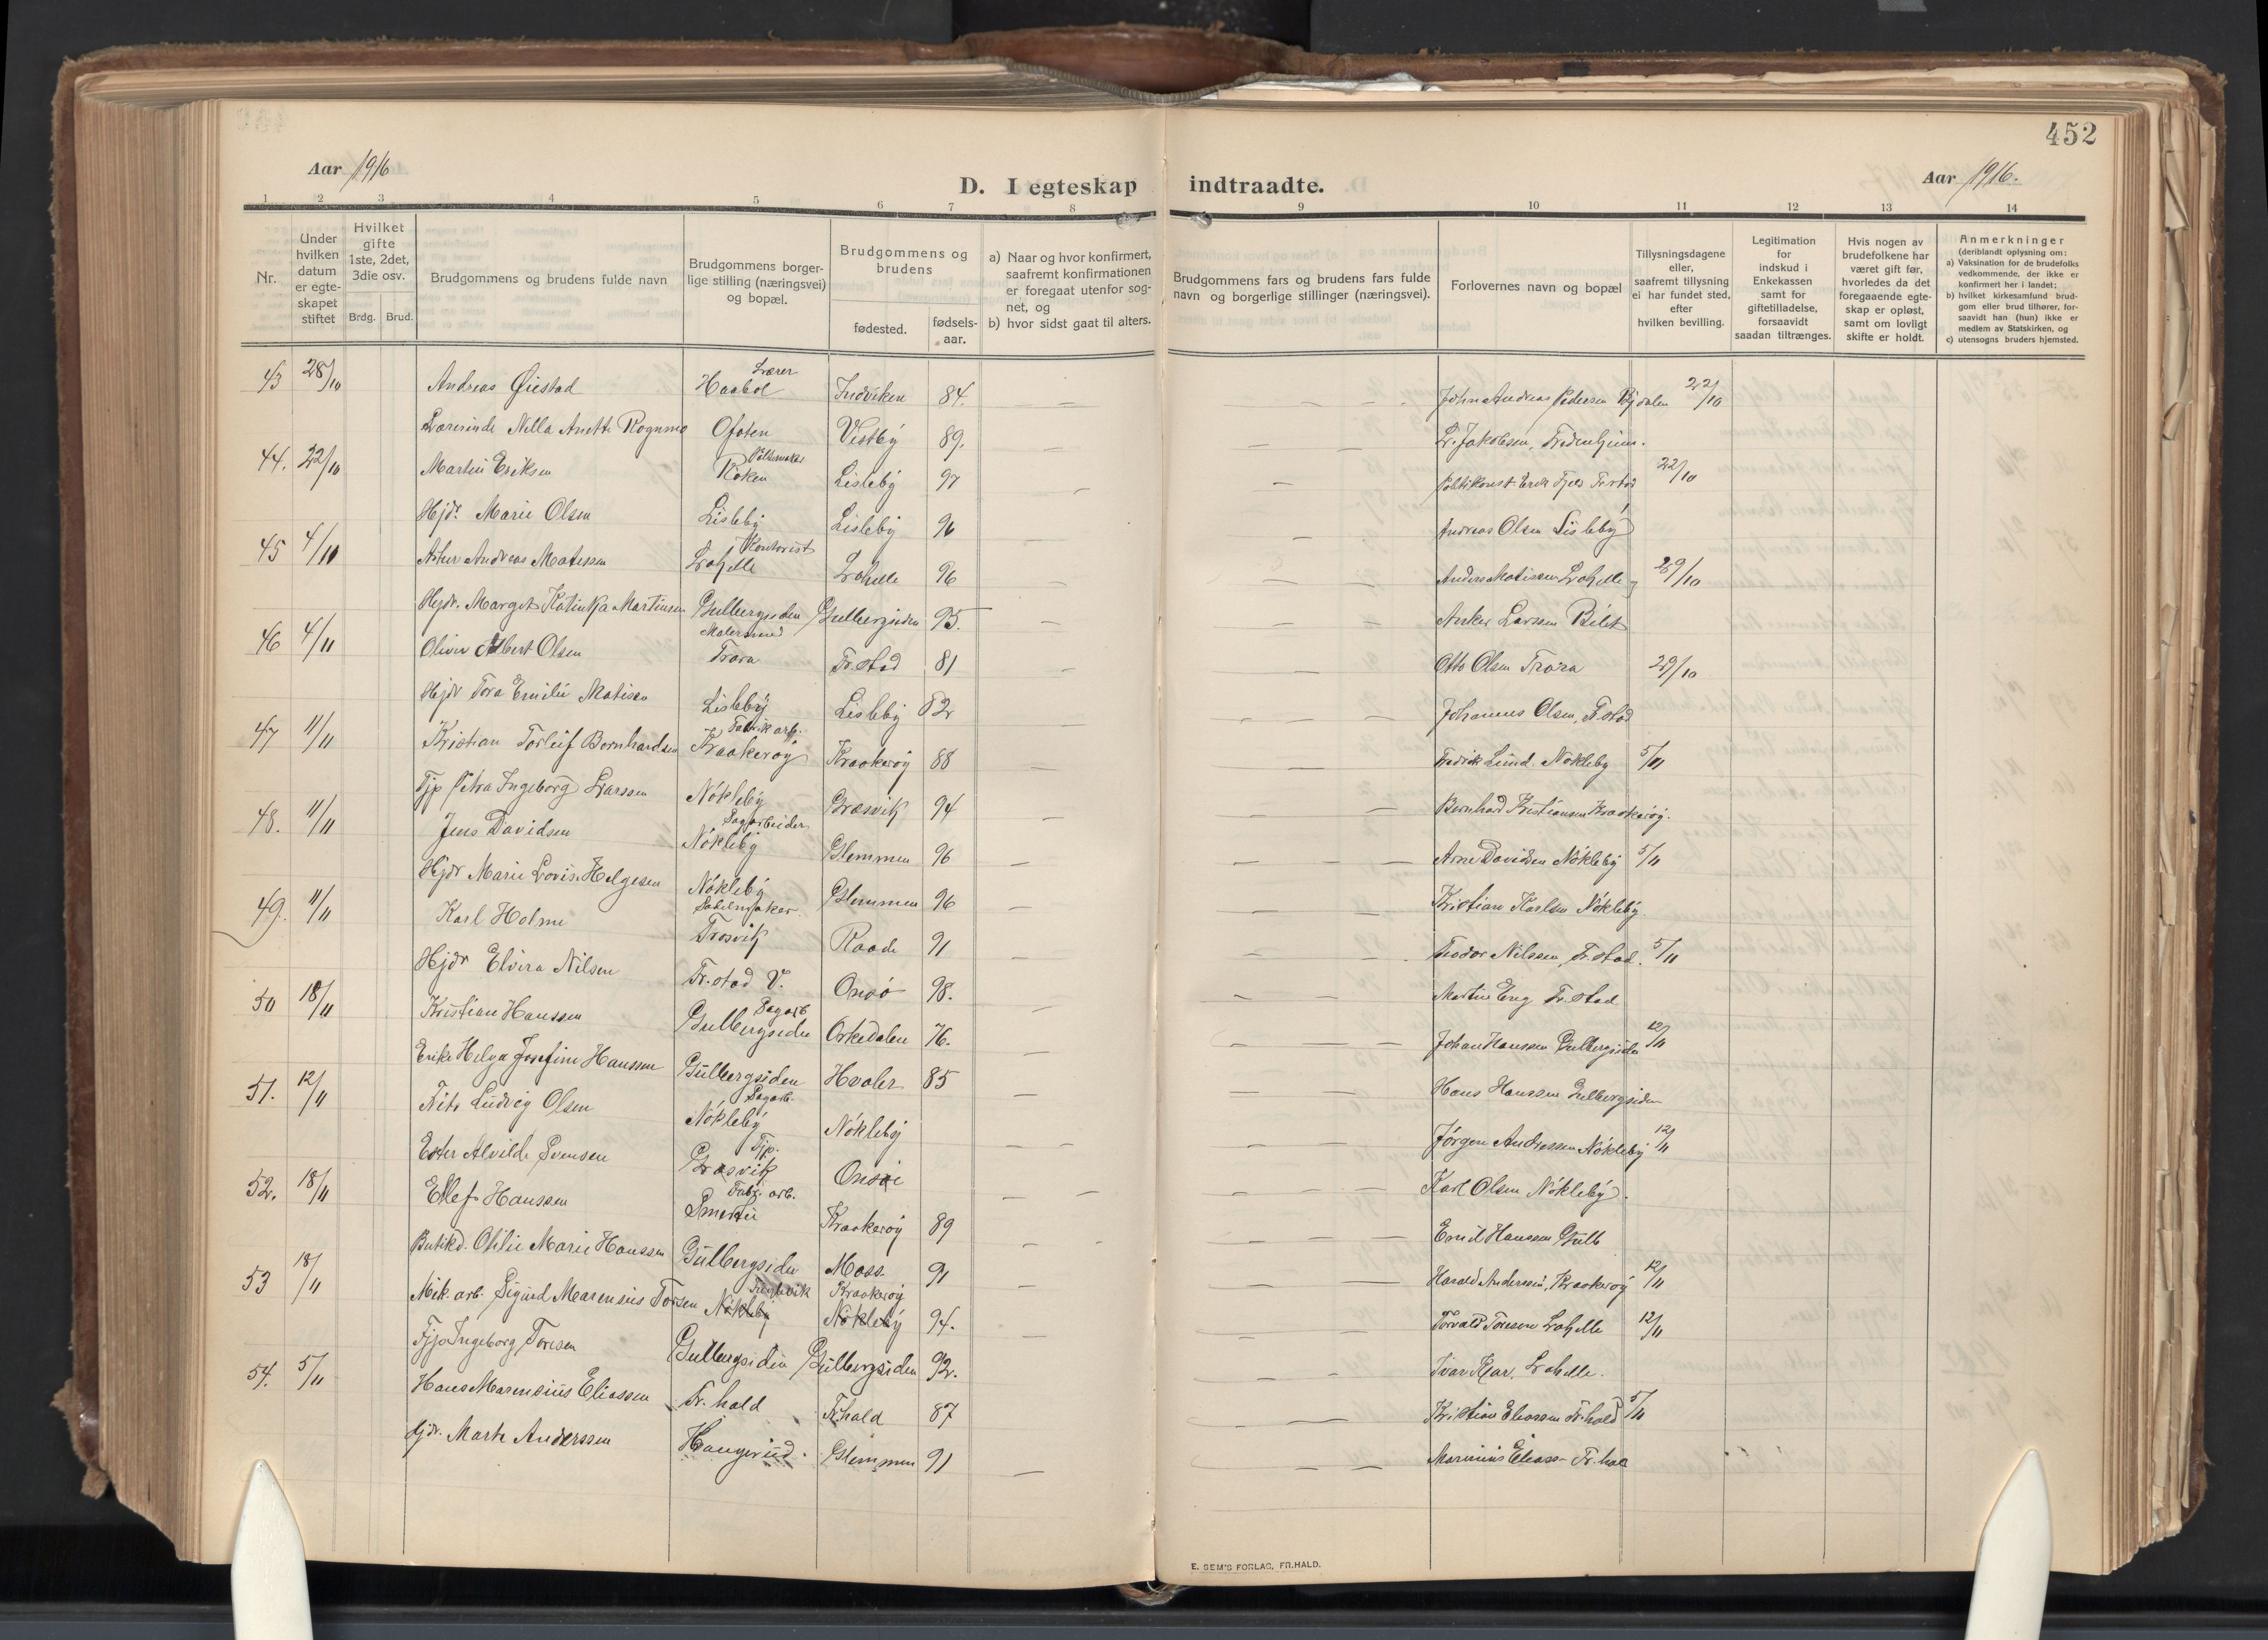 452
Aar 1916
D. I egteskap indtraadte.
Aar 1916.
1 2 3 4 5 6 7 8 9 10 11 12 13 14
Nr.
Under hvilken datum er egte-skapet stiftet
Hvilket gifte 1ste, 2det, 3die osv.
Brdg. Brud.
Brudgommens og brudens fulde navn
Brudgommens borger-lige stilling (næringsvei) og bopæl.
Brudgommens og brudens
fødested.
fødsels-aar.
a) Naar og hvor konfirmert, saafremt konfirmationen er foregaat utenfor sog-net, og
b) hvor sidst gaat til alters.
Brudgommens fars og brudens fars fulde navn og borgerlige stillinger (næringsvei).
Forlovernes navn og bopæl
Tillysningsdagene eller, saafremt tillysning ei har fundet sted, efter hvilken bevilling.
Legitimation for indskud i Enkekassen samt for giftetilladelse, forsaavidt saadan tiltrænges.
Hvis nogen av brudefolkene har været gift før, hvorledes da det foregaaende egte-skap er opløst, samt om lovligt skifte er holdt.
Anmerkninger (deriblandt oplysning om:
a) Vaksination for de brudefolks vedkommende, der ikke er konfirmert her i landet;
b) hvilket kirkesamfund brud-gom eller brud tilhører, for-saavidt han (hun) ikke er medlem av Statskirken, og
c) utensogns bruders hjemsted.
43 28/10 Andreas Øiestad Lærer Haabøl Indviken 84. John Andreas Pedersen 22/10
Lærerinde Nilla Anette Rognmo Ofoten Vestby 89. L. Jakobsen,
44. 22/10 Martin Eriksen Røken Lisleby 97 Politikonst. Erik Fjeld Fr.stad 22/10
Hjdr. Marie Olsen Lisleby Lisleby 96 Andreas Olsen Lisleby
45 4/10 Artur Andreas Matissen Kontorist Lahelle Lahelle 96 Anders Matissen Lahelle 29/10
Hjdr. Margit Katinka Martinsen Gulbergsiden Gulbergsiden 95. Anker Larssen Bilet
46 4/11 Oliver Albert Olsen Malersvend Trara Fr.stad 81 Otto Olsen Trara 29/10
Hjdr Tora Emilie Matisen Lisleby Lisleby 82 Johannes Olsen, F.stad
47 11/11 Kristian Torleif Bernhardsen Fabrikarb. Kraakerøy Kraakerøy 88 Fredrik Lund. Nøkleby 5/11
Tjp Petra Ingeborg Larssen Nøkleby Græsvik 94 Bernhard Kristiansen Kraakerøy.
48. 11/11 Jens Davidsen Sagarbeider Nøkleby Glemmen 96 Arne Davidsen Nøkleby 5/11
Hjdr Marie Lovise Helgesen Nøkleby Glemmen 96 Kristian Karlsen Nøkleby
49. 11/11 Karl Holme Sadelmaker. Trosvik Raade 91 Teodor Nilssen, Fr.stad. 5/11
Hjdr Elvira Nilsen Fr.stad V. Onsø 98. Martin Eng Fr.stad
50 18/11 Kristian Hanssen Sagarb Gulbergsiden Orkedalen 76. Johan Hanssen Gulbergsiden 12/11
Enke Helga Josefine Hanssen Gulbergsiden Hvaler 85 Hans Hanssen Gulbergsiden
51. 12/11 Ludvig Olsen Sagarb. Nøkleby Nøkleby Jørgen Andreassen Nøkleby 12/11
Ester Alvilde Svensen Tjp. Græsvik Onsøe Karl Olsen Nøkleby.
52. 18/11 Ellef Hanssen Fabr. arb. Smertu Kraakerøy 89 Emil Hanssen Gulb
Butikd. Otilie Marie Hanssen Gulbergsiden Moss 91 Harald Andersen, Kraakerøy 12/11
53 18/11 Mek. arb. Sigurd Marensius Torsen Nøkleby Kraakerøy Nøkleby 94. Torvald Toresen Lahelle 12/11
Tjp Ingeborg Toresen Gulbergsiden Gulbergsiden 92. Ivar Kjar, Lahelle.
54. 5/11 Hans Marensius Eliassen Fr.hald Fr.hald 87 Kristian Eliassen Fr.hald 5/11
Hjdr. Marte Anderssen Haugerud. Glemmen 91 Marinius Eliass- Fr.hal
E. SEM'S FORLAG, FR.HALD.